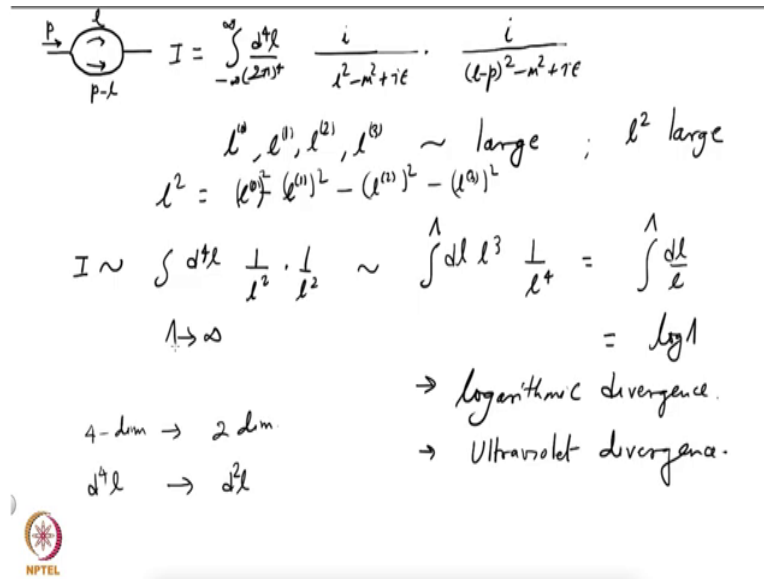 p l
p-l
I = ∫_{-∞}^{∞} d⁴l/(2π)⁴ i/(l²-m²+iϵ) · i/((l-p)²-m²+iϵ)
l⁽⁰⁾, l⁽¹⁾, l⁽²⁾, l⁽³⁾ ~ large ; l² large
l² = (l⁽⁰⁾)² - (l⁽¹⁾)² - (l⁽²⁾)² - (l⁽³⁾)²
I ~ ∫ d⁴l 1/l² · 1/l² ~ ∫^Λ dl l³ 1/l⁴ = ∫^Λ dl/l
Λ → ∞ = log Λ
→ logarithmic divergence.
4-dim → 2 dim. → Ultraviolet divergence.
d⁴l → d²l
NPTEL